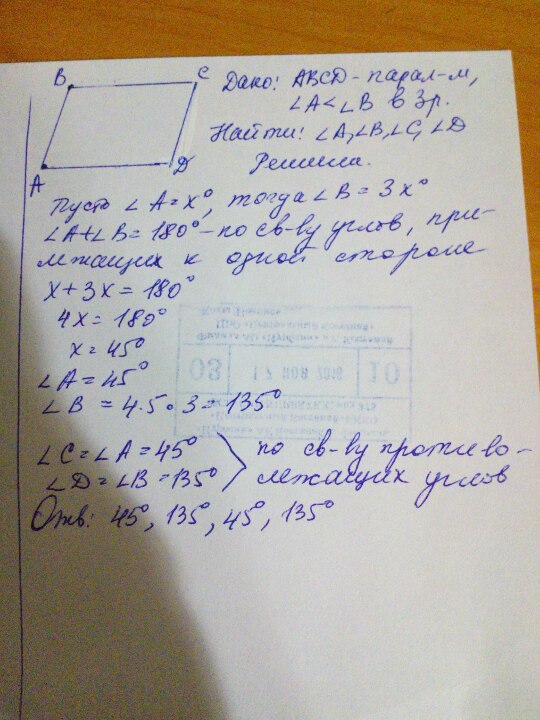 B
C
A
D
Дано: ABCD - парал-м,
∠A < ∠B в 3 р.
Найти: ∠A, ∠B, ∠C, ∠D
Решение.
Пусть ∠A = x°, тогда ∠B = 3x°
∠A+∠B = 180° - по св-ву углов, при-
лежащих к одной стороне
x + 3x = 180°
4x = 180°
x = 45°
∠A = 45°
∠B = 4·5·3 = 135°
∠C = ∠A = 45°
∠D = ∠B = 135°
по св-ву противо-
лежащих углов
Отв: 45°, 135°, 45°, 135°
03
17 НОЯ 2016
10